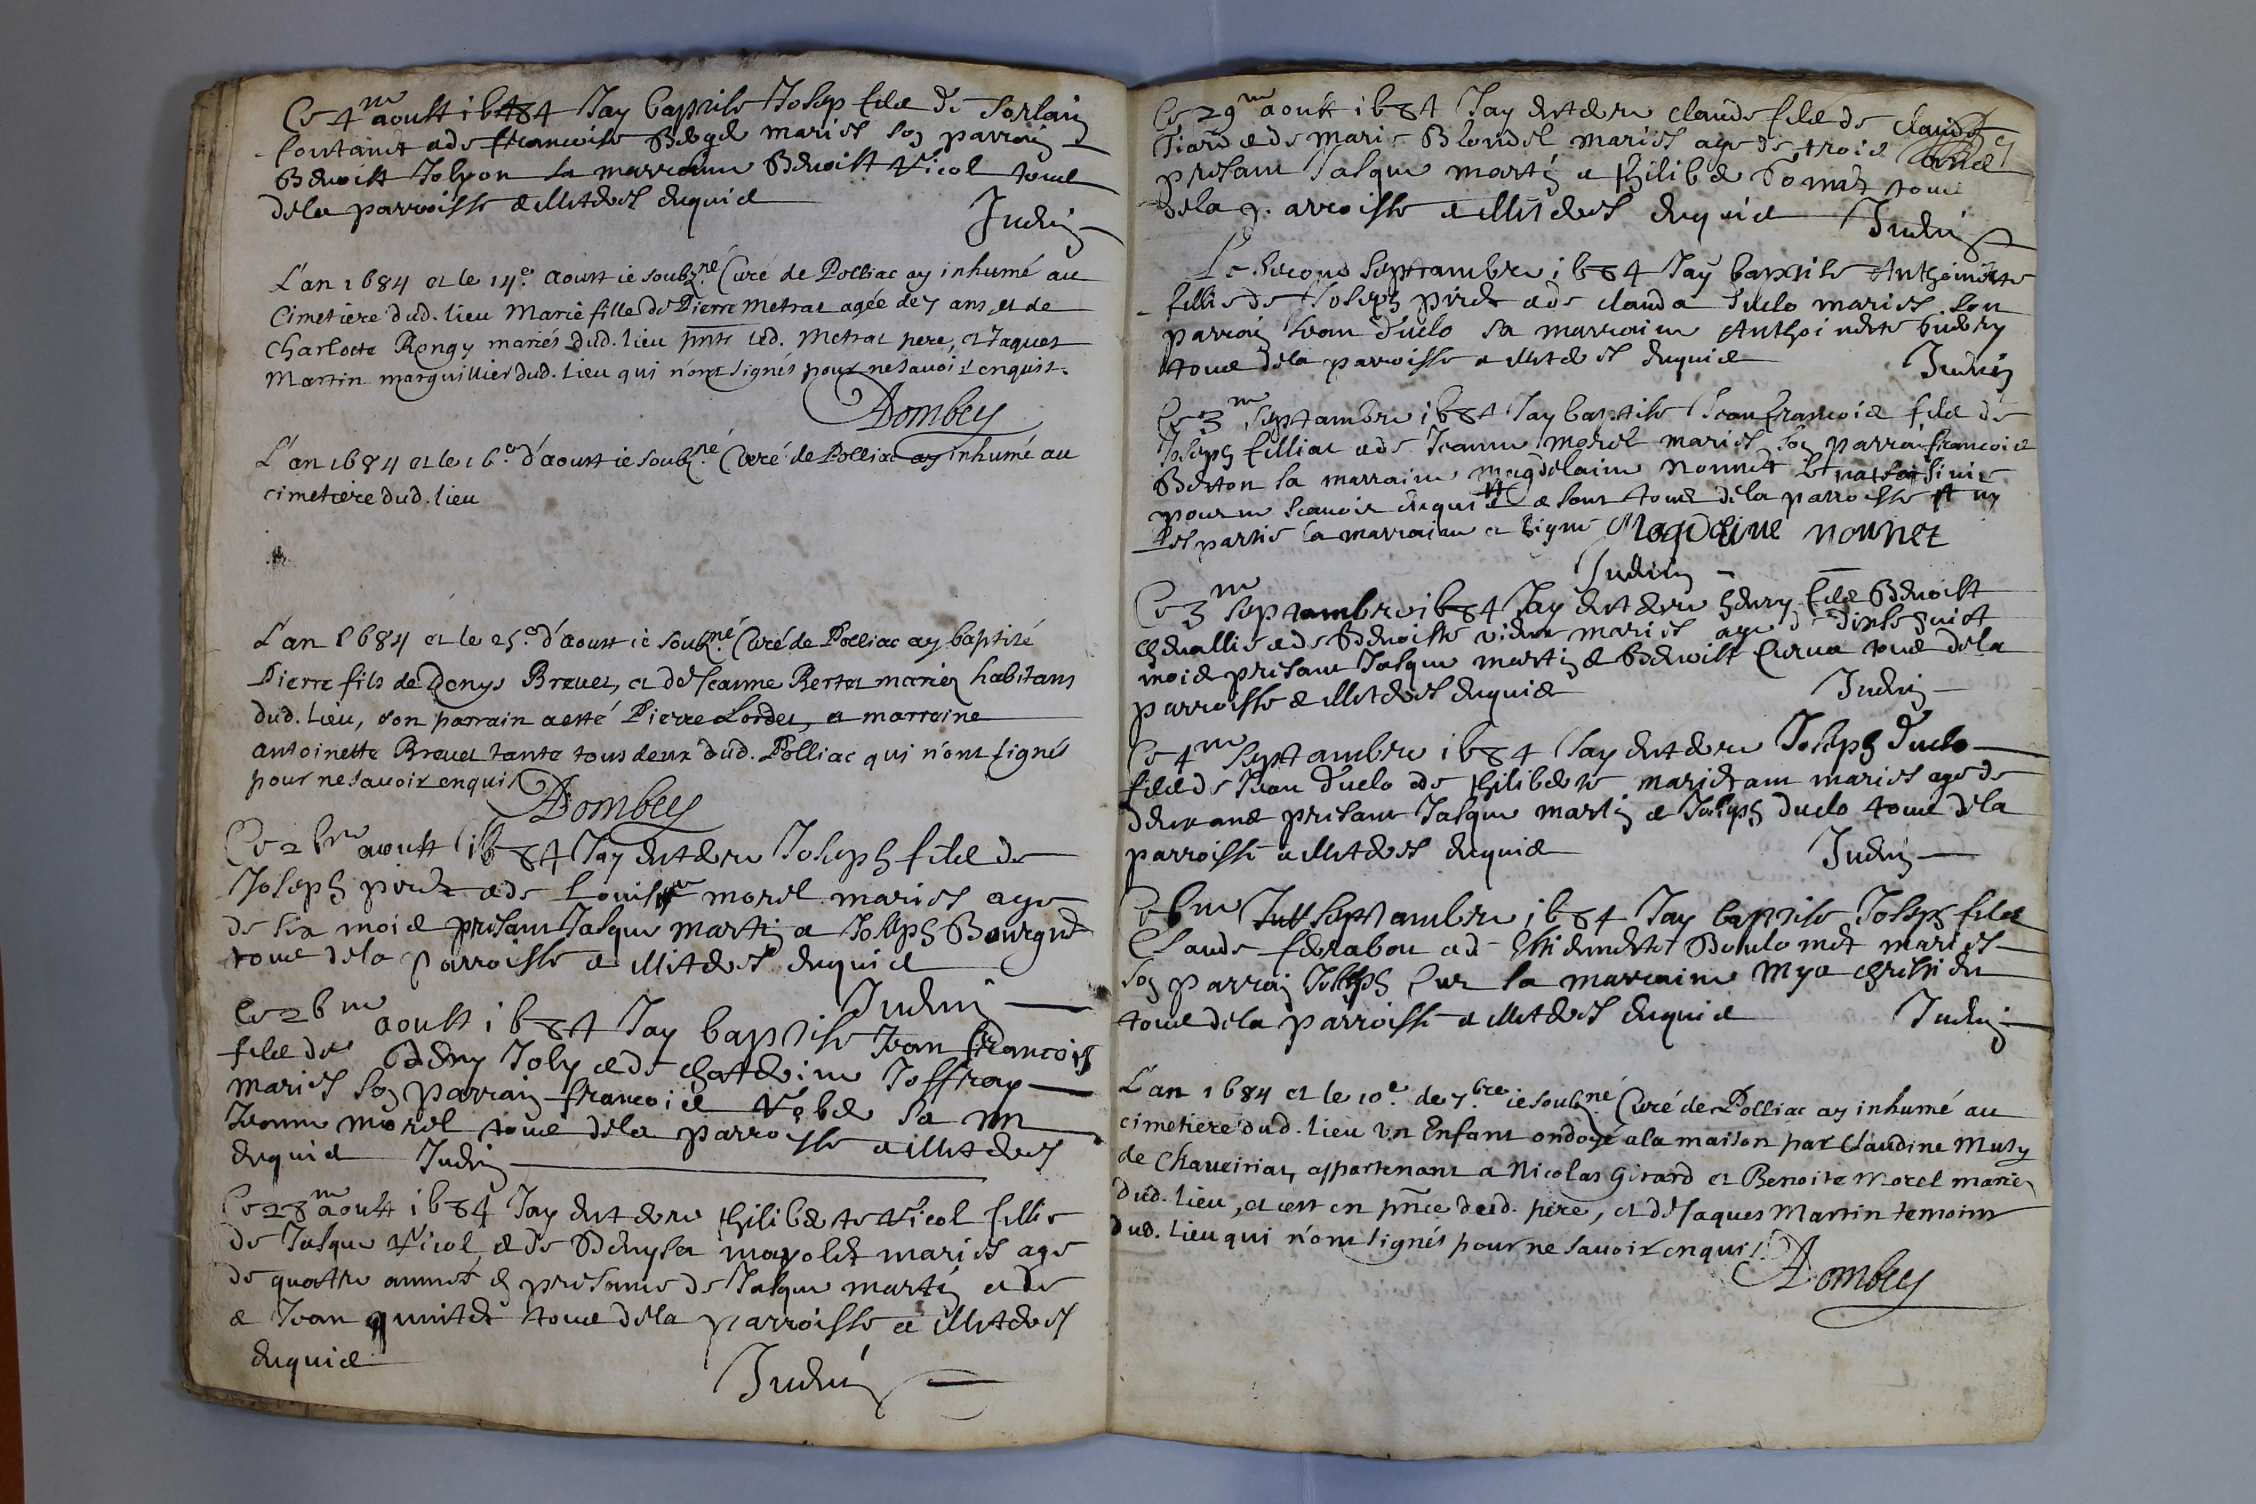 Ce 4me aoust 1684 Jay baptise Josep fils de Sorlain
fontaint e de francoise Bege mariés son parrain
Benoist Jolyon sa marraine Benoist Nicol tous
dela parroisse e illiteres enquis
Judin
L'an 1684 et le 14e aoust ie soubz.né Curé de Polliac ay inhumé au
Cimetiere dud. lieu Marie fille de Pierre Metrat agée de 7 ans, et de
Charlotte Rongy mariés dud. lieu pnts led. Metrat pere, et Jaques
Martin marguillier dud. lieu qui n'ont signés pour ne savoir enquis.
Dombey
L'an 1684 et le 16e d'aoust ie soubz.né Curé de Polliac ay inhumé au
cimetiere dud. lieu
L'an 1684 et le 25e d'aoust ie soubz.né Curé de Polliac ay baptisé
Pierre fils de Denys Brevet, et de Jeanne Bertet mariez habitans
dud. lieu, son parrain a esté Pierre Cordet, et marraine
antoinette Brevet tante tous deux dud. Polliac qui n'ont signés
pour ne savoir enquis
Dombey
Ce 26me aoust 1684 Jay enterre Joseph fils de
Joseph piret e de Louise morel mariés age
de six mois present Jasque martin e Joseph Bourget
tous dela parroisse e illiteres enquis
Judin
Ce 26me aoust 1684 Jay baptise Jean francois
fils de henry Joly e de Catherine Joffray
mariés son parrain francois sa m
Jeanne morel tous dela parroisse e illiteres
enquis Judin
Ce 28me aoust 1684 Jay enterre philiberte Nicol fillie
de Jasque Nicol e de Denysa mayolet mariés age
de quattre années en presence de Jasque martin e de
e Jean quintet tous dela parroisse e illiteres
enquis
Judin
Ce 29me aoust 1684 Jay enterre claude fils de claude
Tiard e de marie Blondel mariés age de trois ans
present Jasque martin e philibe Ponet tous
dela parroisse e illiteres enquis Judin
Le second septambre 1684 Jay baptise Anthoinette
fillie de Joseph piret e de clauda duclo mariés son
parrain Jean duclo sa marraine Anthoinette
tous dela parroisse e illiteres enquis Judin
Ce 3me septambre 1684 Jay baptise Jean francois fils de
Joseph filliat e de Jeanne morel mariés son parrain francois
Berton sa marraine magdelaine nonnet
pour ne scavoir enquis e sont tous dela parroisse
les parties la marraine a signe Magdeleine nonnet
Judin
Ce 3me septambre 1684 Jay enterre henry fils Benoist
chevallie e de Benoiste mariés age de dixshuict
mois present Jasque martin e benoist tous dela
parroisse e illiteres enquis Judin
Ce 4me septambre 1684 Jay enterre Joseph duclo
fils de Jean duclo e de philiberte mariés age de
deux ans present Jasque martin e Joseph duclo tous dela
parroisse e illiteres enquis Judin
Ce 6me septambre 1684 Jay baptise Joseph fils
Claude ferabou e de mariés
son parrain Joseph sa marraine
tous dela parroisse e illiteres enquis Judin
L'an 1684 et le 10e de 7bre ie soubz.né Curé de Polliac ay inhumé au
cimetiere dud. lieu un Enfant ondoyé a la maison par Claudine Muty
de Chaveiriat, appartenant a Nicolas Girard et Benoite Morel mariez
dud. lieu, et cest en pnce dud. pere, et de Jaques Martin temoins
dud. lieu qui n'ont signés pour ne savoir enquis
Dombey